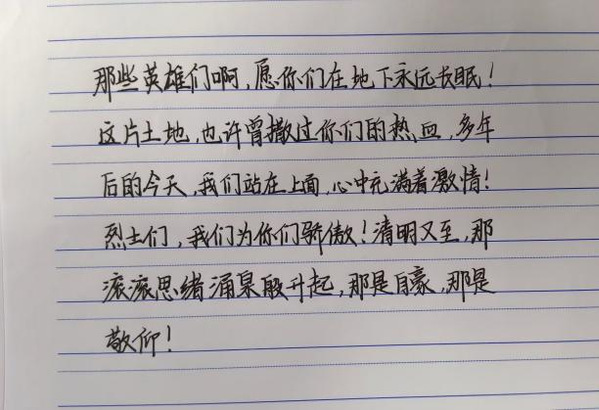 那些英雄们啊,愿你们在地下永远长眠!
这片土地,也许曾撒过你们的热血,多年
后的今天,我们站在上面,心中充满着激情!
烈士们,我们为你们骄傲!清明又至,那
滚滚思绪涌泉般升起,那是自豪,那是
敬仰!